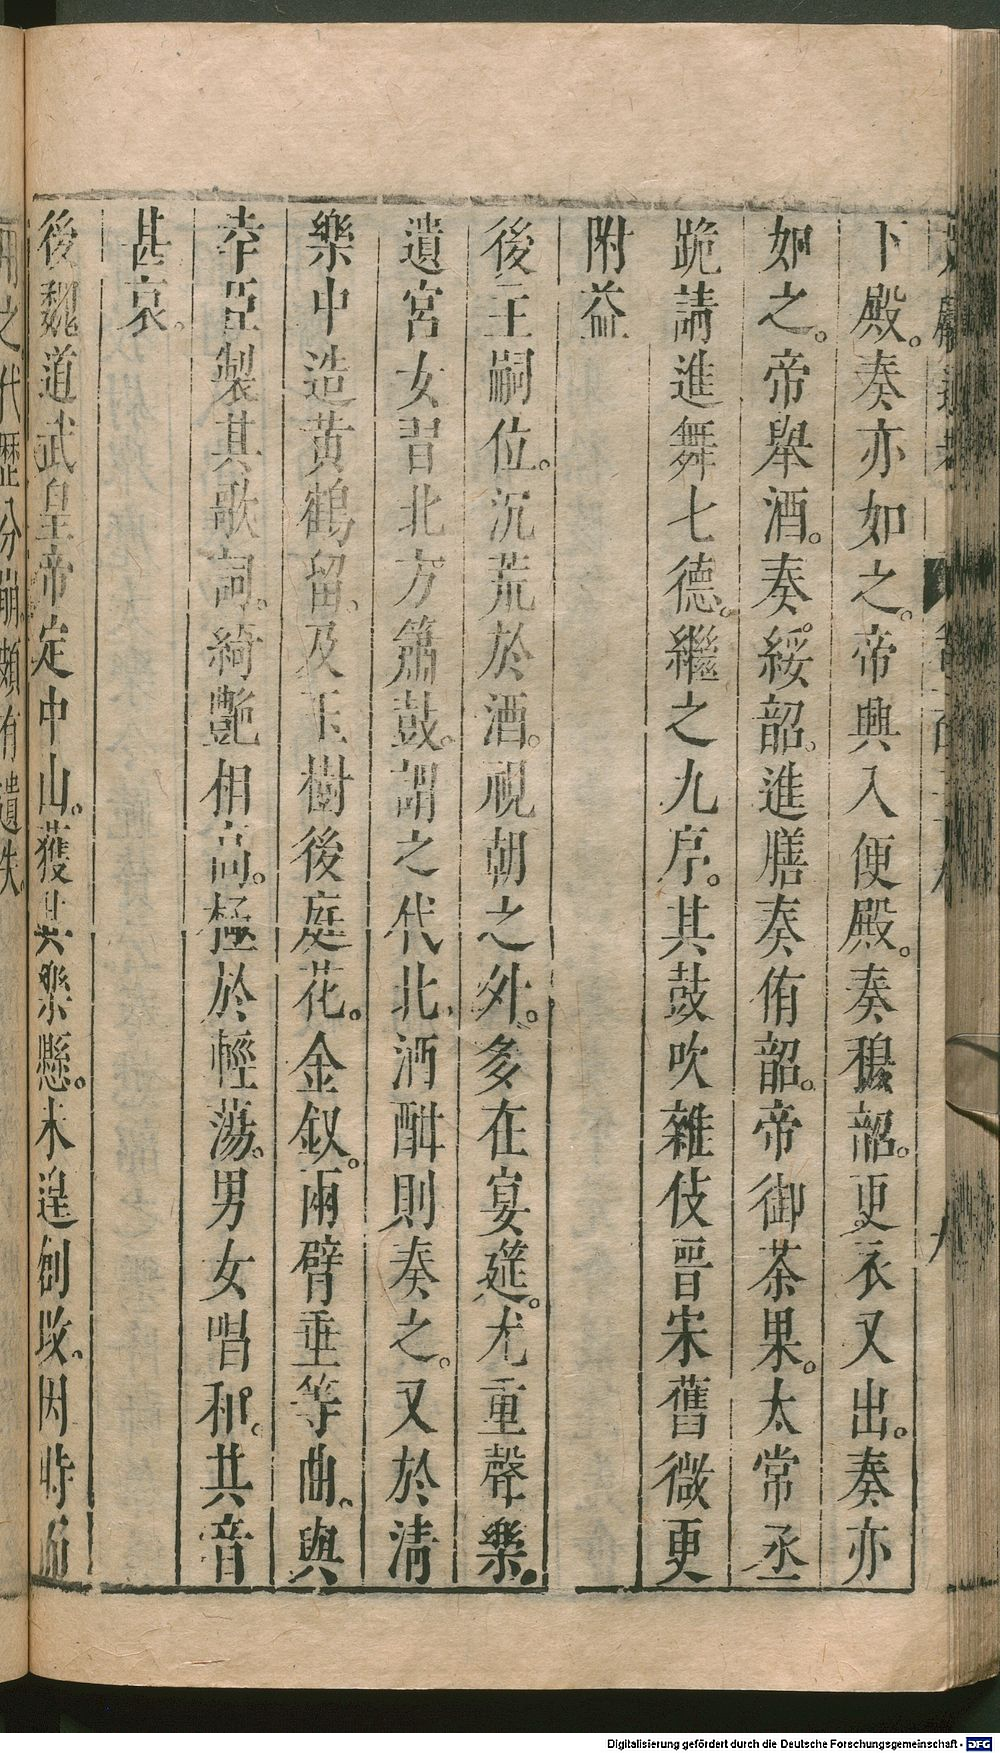 下殿。奏亦如之。帝興入便殿。奏穆韶。更衣又出。奏亦
如之。帝舉酒。奏綏韶。進膳奏侑韶。帝御茶果。太常丞
跪請進舞七德。繼之九序。其鼓吹雜伎晉宋舊微更
附益
後主嗣位。沉荒於酒。視朝之外。多在宴筵。尤重聲樂。
遺宮女習北方簫鼓。謂之代北。酒酣則奏之。又於清
樂中造黄鶴留。及玉樹後庭花。金釵。兩臂垂等曲。與
幸臣製其歌詞。綺艷相高。極於輕蕩。男女唱和。其音
甚哀。
後魏道武皇帝定中山。獲其樂懸。未遑創改。因時而
用之代歷分崩。頗有遺失。
Digitalisierung gefördert durch die Deutsche Forschungsgemeinschaft - DFG